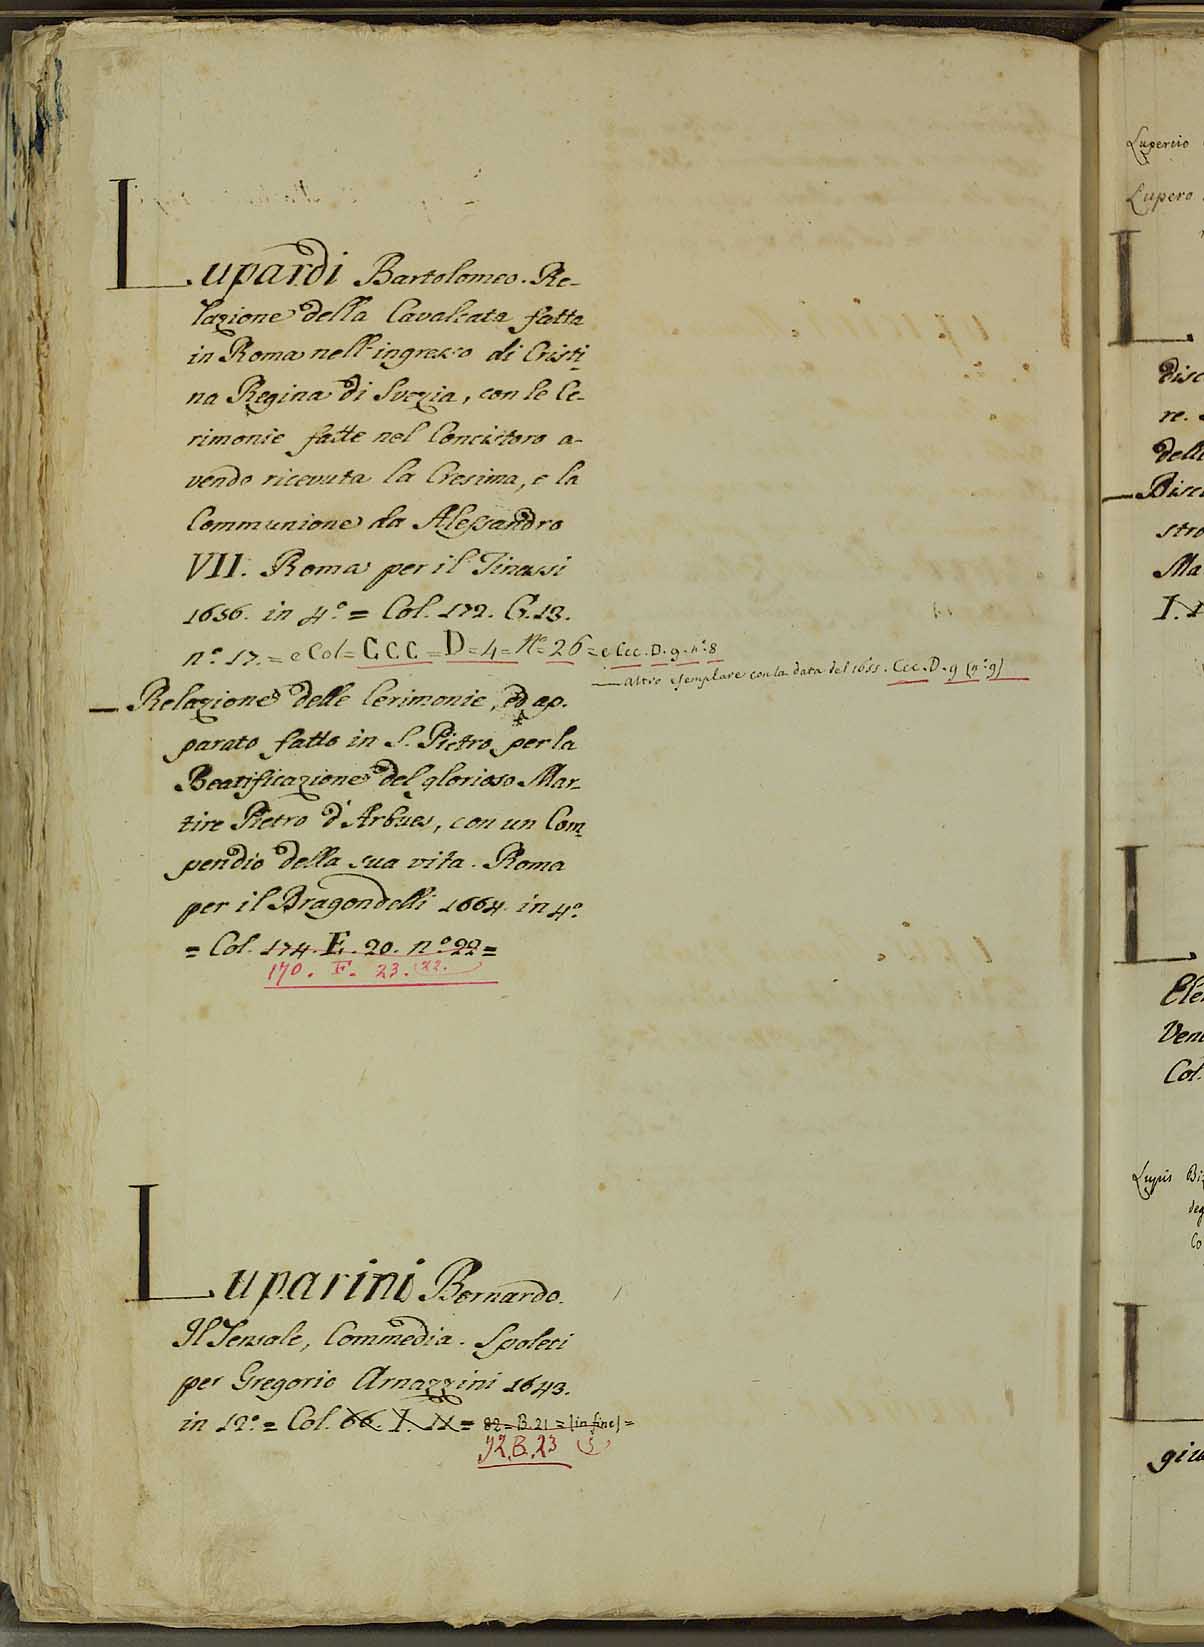 Lupardi Bartolomeo. Re-
lazione della Cavalcata fatta
in Roma nell'ingresso di Cristi-
na Regina di Svezia, con le Ce-
rimonie fatte nel Concistoro a-
vendo ricevuta la Cresima, e la
Communione da Alessandro
VII. Roma per il Tinassi
1656. in 4.º = Col. 172. G. 13.
nº. 17. = e Col = C.C.C = D = 4 = Nº = 26 = e Ccc. D. 9. nº. 8
— altro esemplare con la data del 1655. Ccc. D. 9 (nº 9)
— Relazione delle Cerimonie, ed ap-
parato fatto in S. Pietro per la
Beatificazione del glorioso Mar-
tire Pietro d'Arbues, con un Com-
pendio della sua vita. Roma
per il Dragondelli 1664. in 4º.
= Col. 174. E. 20. nº 22 =
170. F. 23. (22.
Luparini Bernardo.
Il Sensale, Commedia. Spoleti
per Gregorio Arnazzini 1643.
in 12º. = Col. 66. I. 11 = 82 = B. 21 = (in fine) =
92. B. 23
Lupercio
Lupero
L
disc
re.
delle
— Disc
stro
Ma
L
Ele
Vene
Col.
Lupis Bi
deg
Co
L
giu